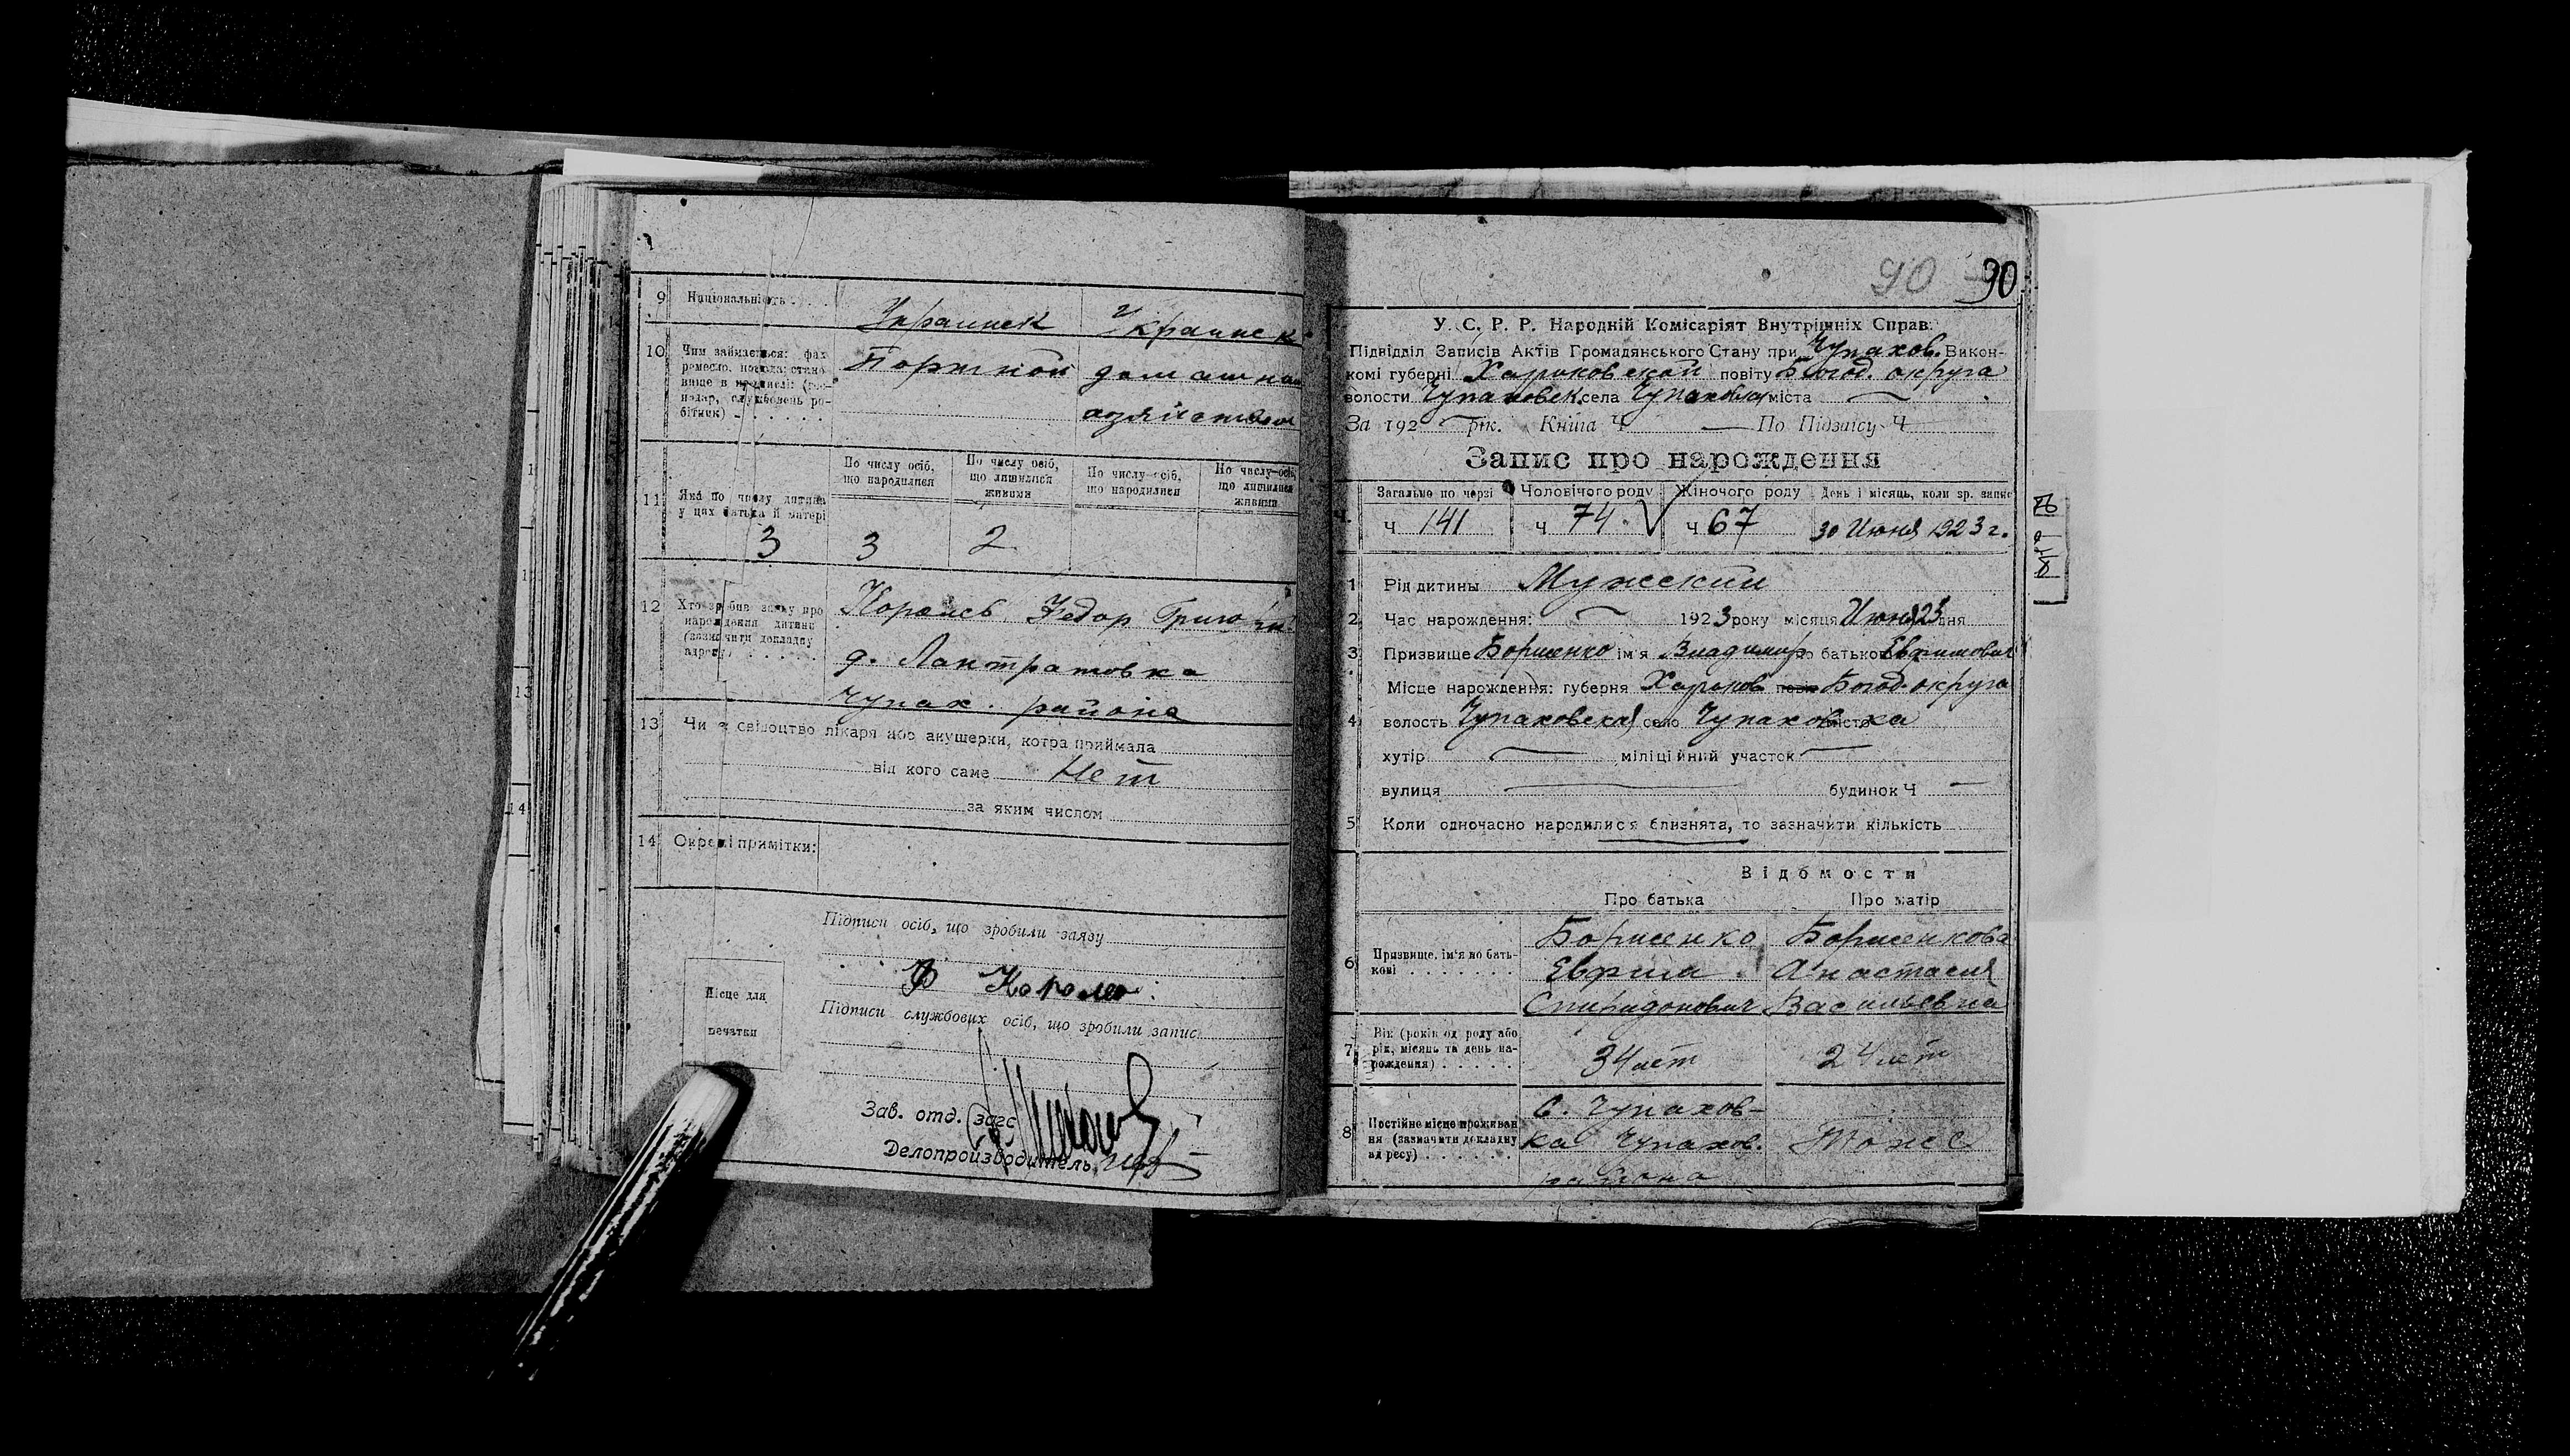 9 Національність . . . . Украинск Украинск
10 Чим займається: фах
ремесло, посада стано-
вище в промислі: (гос-
подар, службовець ро-
бітник) . . . . . .
Портной
домашнем
хозяйством
11 Яка по числу дитина
у цих батька й матері
3
По числу осіб, що народилися По числу осіб, що лишилися живими По числу осіб, що народилися По числу осіб, що лишилися живими
3 2
12 Хто зробив заяву про
народження дитини
(зазначити докладну
адресу) . . . . .
Король Федор Григо
д. Лантратовка
Чупах. района
13 Чи є свідоцтво лікаря або акушерки, котра приймала
від кого саме Нет
за яким числом
14 Окремі примітки:
Підписи осіб, що зробили заяву
Ф Король
Місце для
печатки
Підписи службових осіб, що зробили запис
Зав. отд. загс
Делопроизводитель
90 90
У. С. Р. Р. Народній Комісаріят Внутрішніх Справ.
Підвідділ Записів Актів Громадянського Стану при Чупахов. Викон-
комі губерні Харьковской повіту Богод. округа
волости Чупаховск. села Чупаховка міста —
За 192 рік. Книга Ч — По Підзапису Ч
Запис про нарождення
Загально по черзі Чоловічого роду Жіночого роду День і місяць, коли зр. запис
Ч. ч 141 ч 74. V ч 67 30 Июня 1923 г.
1 Рід дитины Мужеский
2 Час нарождення: — 1923 року місяця Июня 25 дня
3 Призвище Борисенко ім'я Владимир по батькові Евфимович
4 Місце нарождення: губерня Харьков. повіт Богод. округа
волость Чупаховская село Чупаховка місто
хутір — міліційний участок —
вулиця — будинок Ч —
5 Коли одночасно народилися близнята, то зазначити кількість
Відомости
Про батька Про матір
6 Призвище, ім'я по бать-
кові . . . . . . .
Борисенко Борисенкова
Евфим Анастасия
Спиридонович Васильевна
7 Вік (років од роду або
рік, місяць та день на-
рождення) . . . . .
34 лет 24 лет
8 Постійне місце проживан
ня (зазначити докладну
адресу) . . . . . .
С. Чупахов-
ка Чупахов. Тоже
района